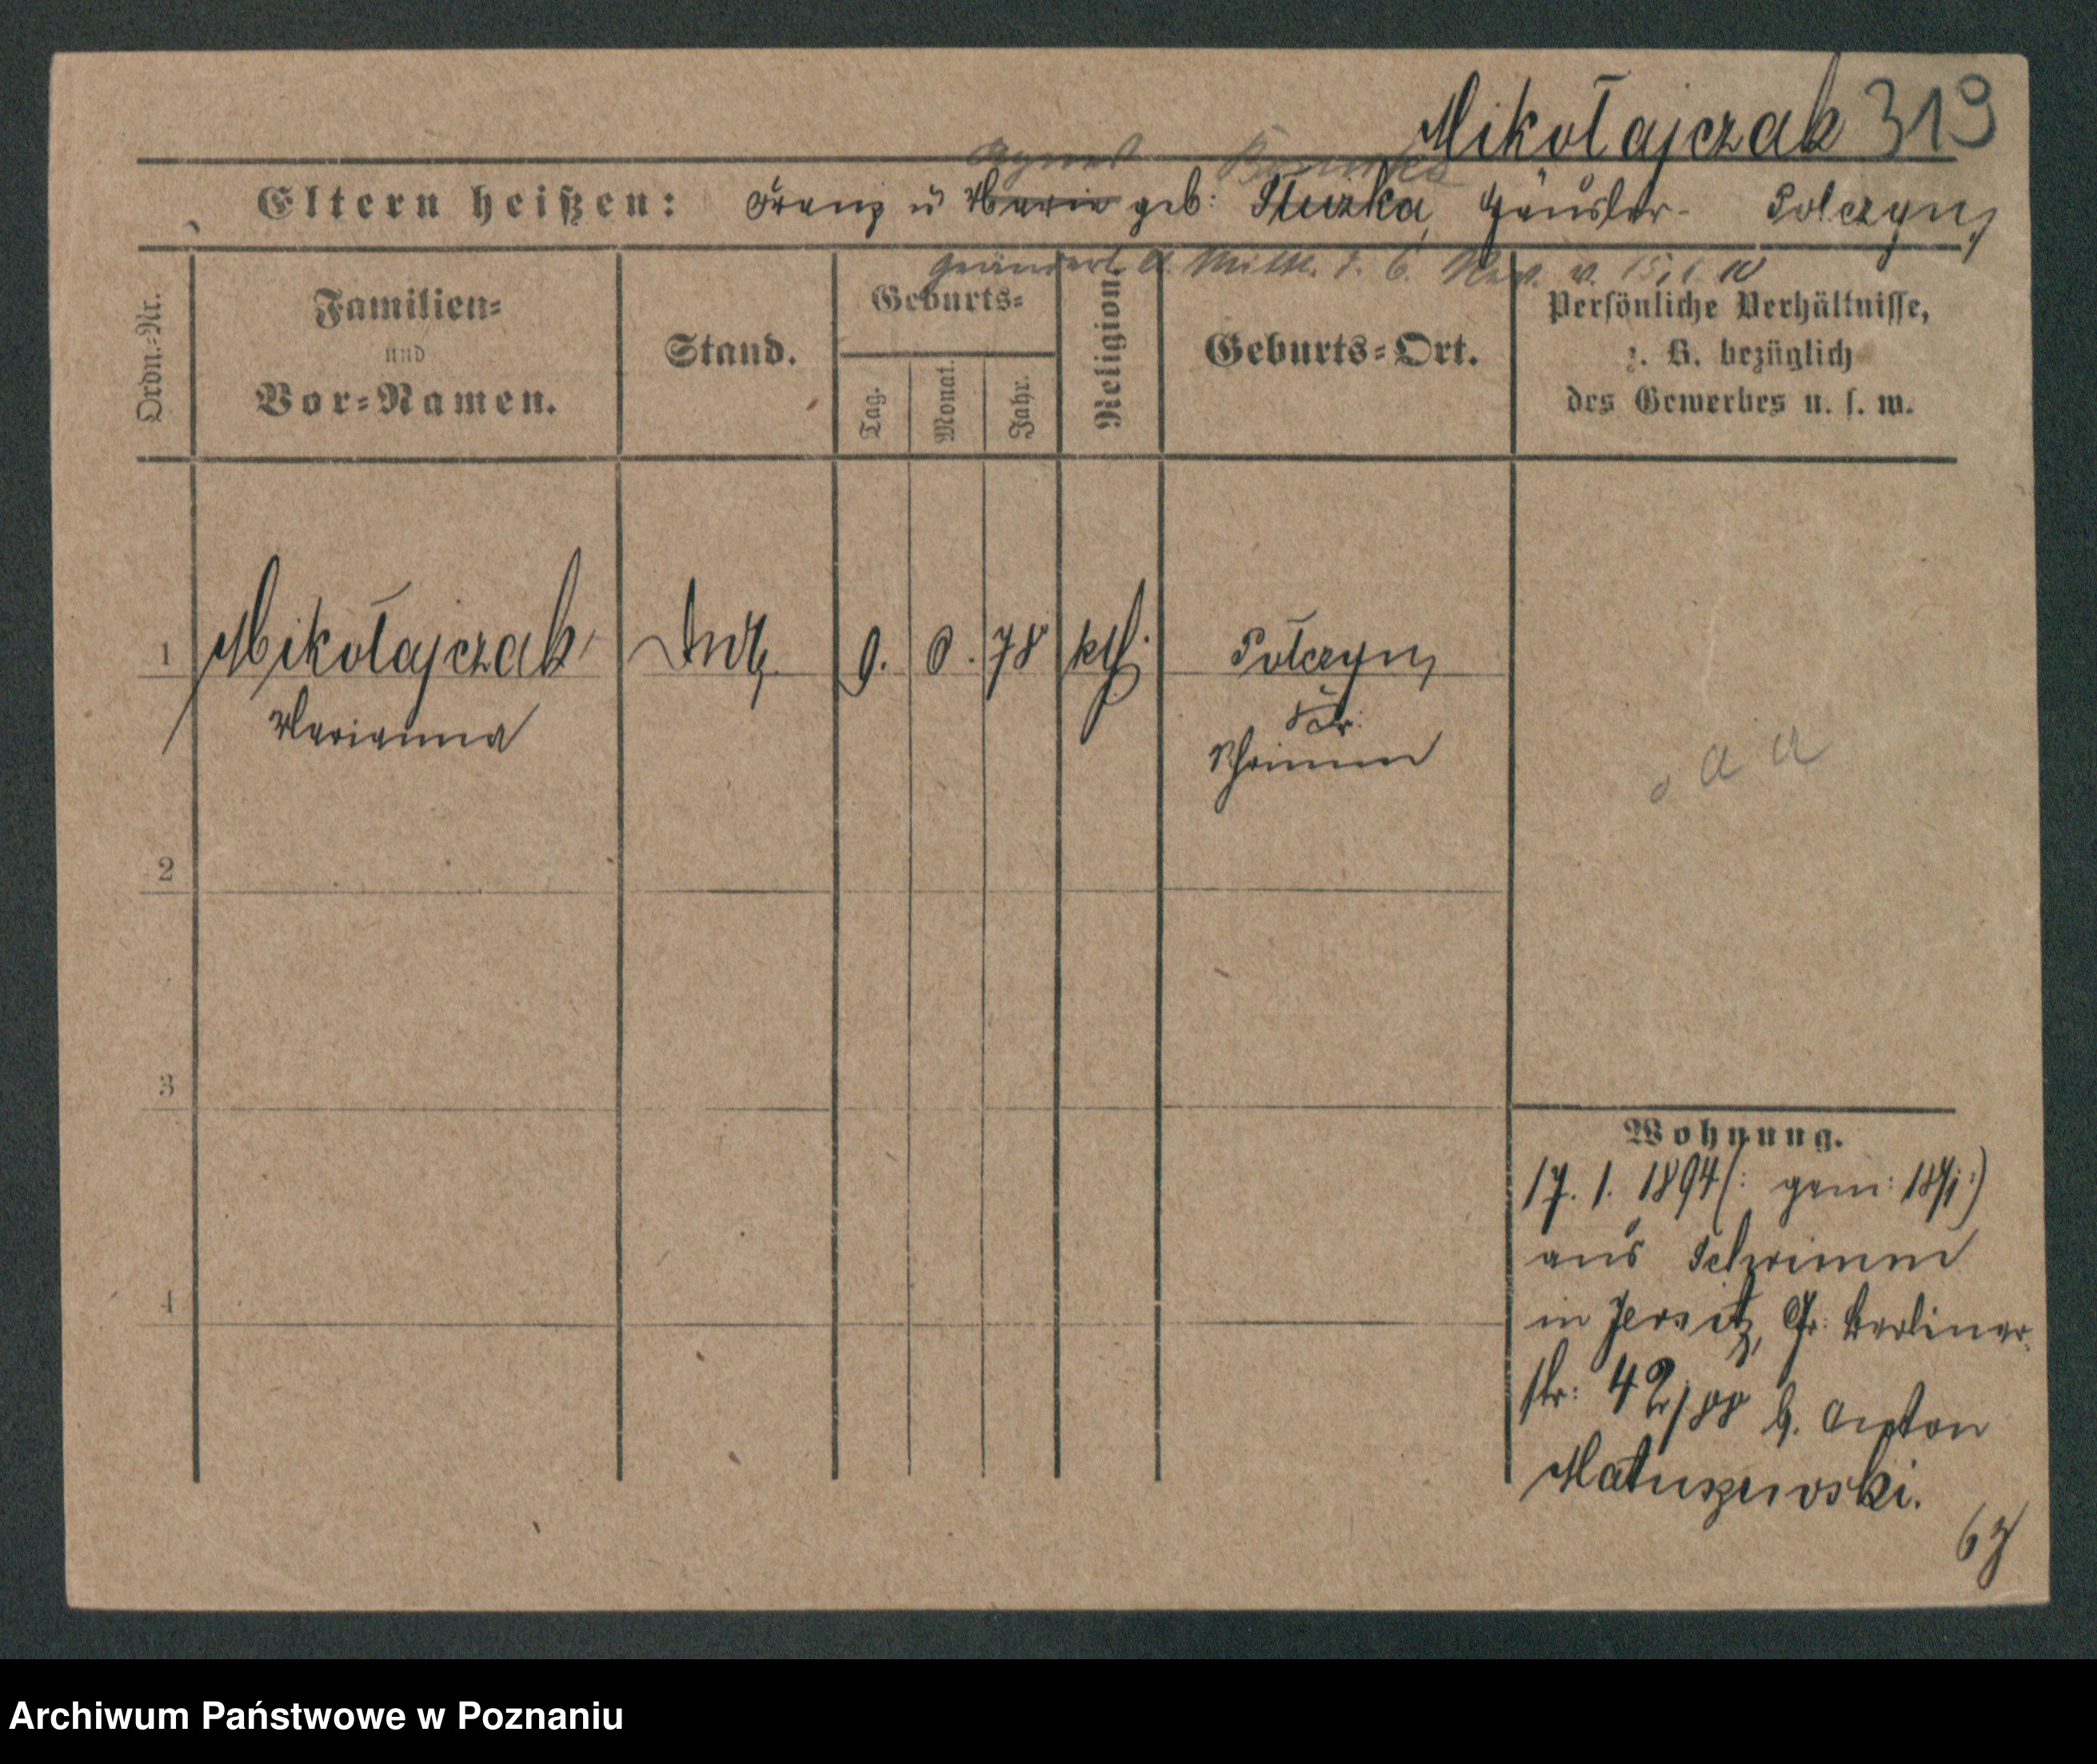 Mikołajczak 319
Agnes
Eltern heißen: Franz u Marie geb: Skuzka, Häusler- Polczyn,
geändert lt. Mitth. d. 6. Rev. v. 15/1. 10
Ordn.-Nr.
Familien-
und
Vor-Namen.
Stand.
Geburts-
Tag.
Monat.
Jahr.
Religion.
Geburts-Ort.
Persönliche Verhältnisse,
z. B. bezüglich
des Gewerbes u. s. w.
1 Mikołajczak 9. 8. 78 kth. Połczyn,
Marianna
Kr:
Schrimm
a a
2
3
4
Wohnung.
17. 1. 1894 (: gem: 18/1:)
aus Schrimm
in Jersitz, Gr. Berliner-
str: 42/88 b. Anton
Matuszewski.
Archiwum Państwowe w Poznaniu